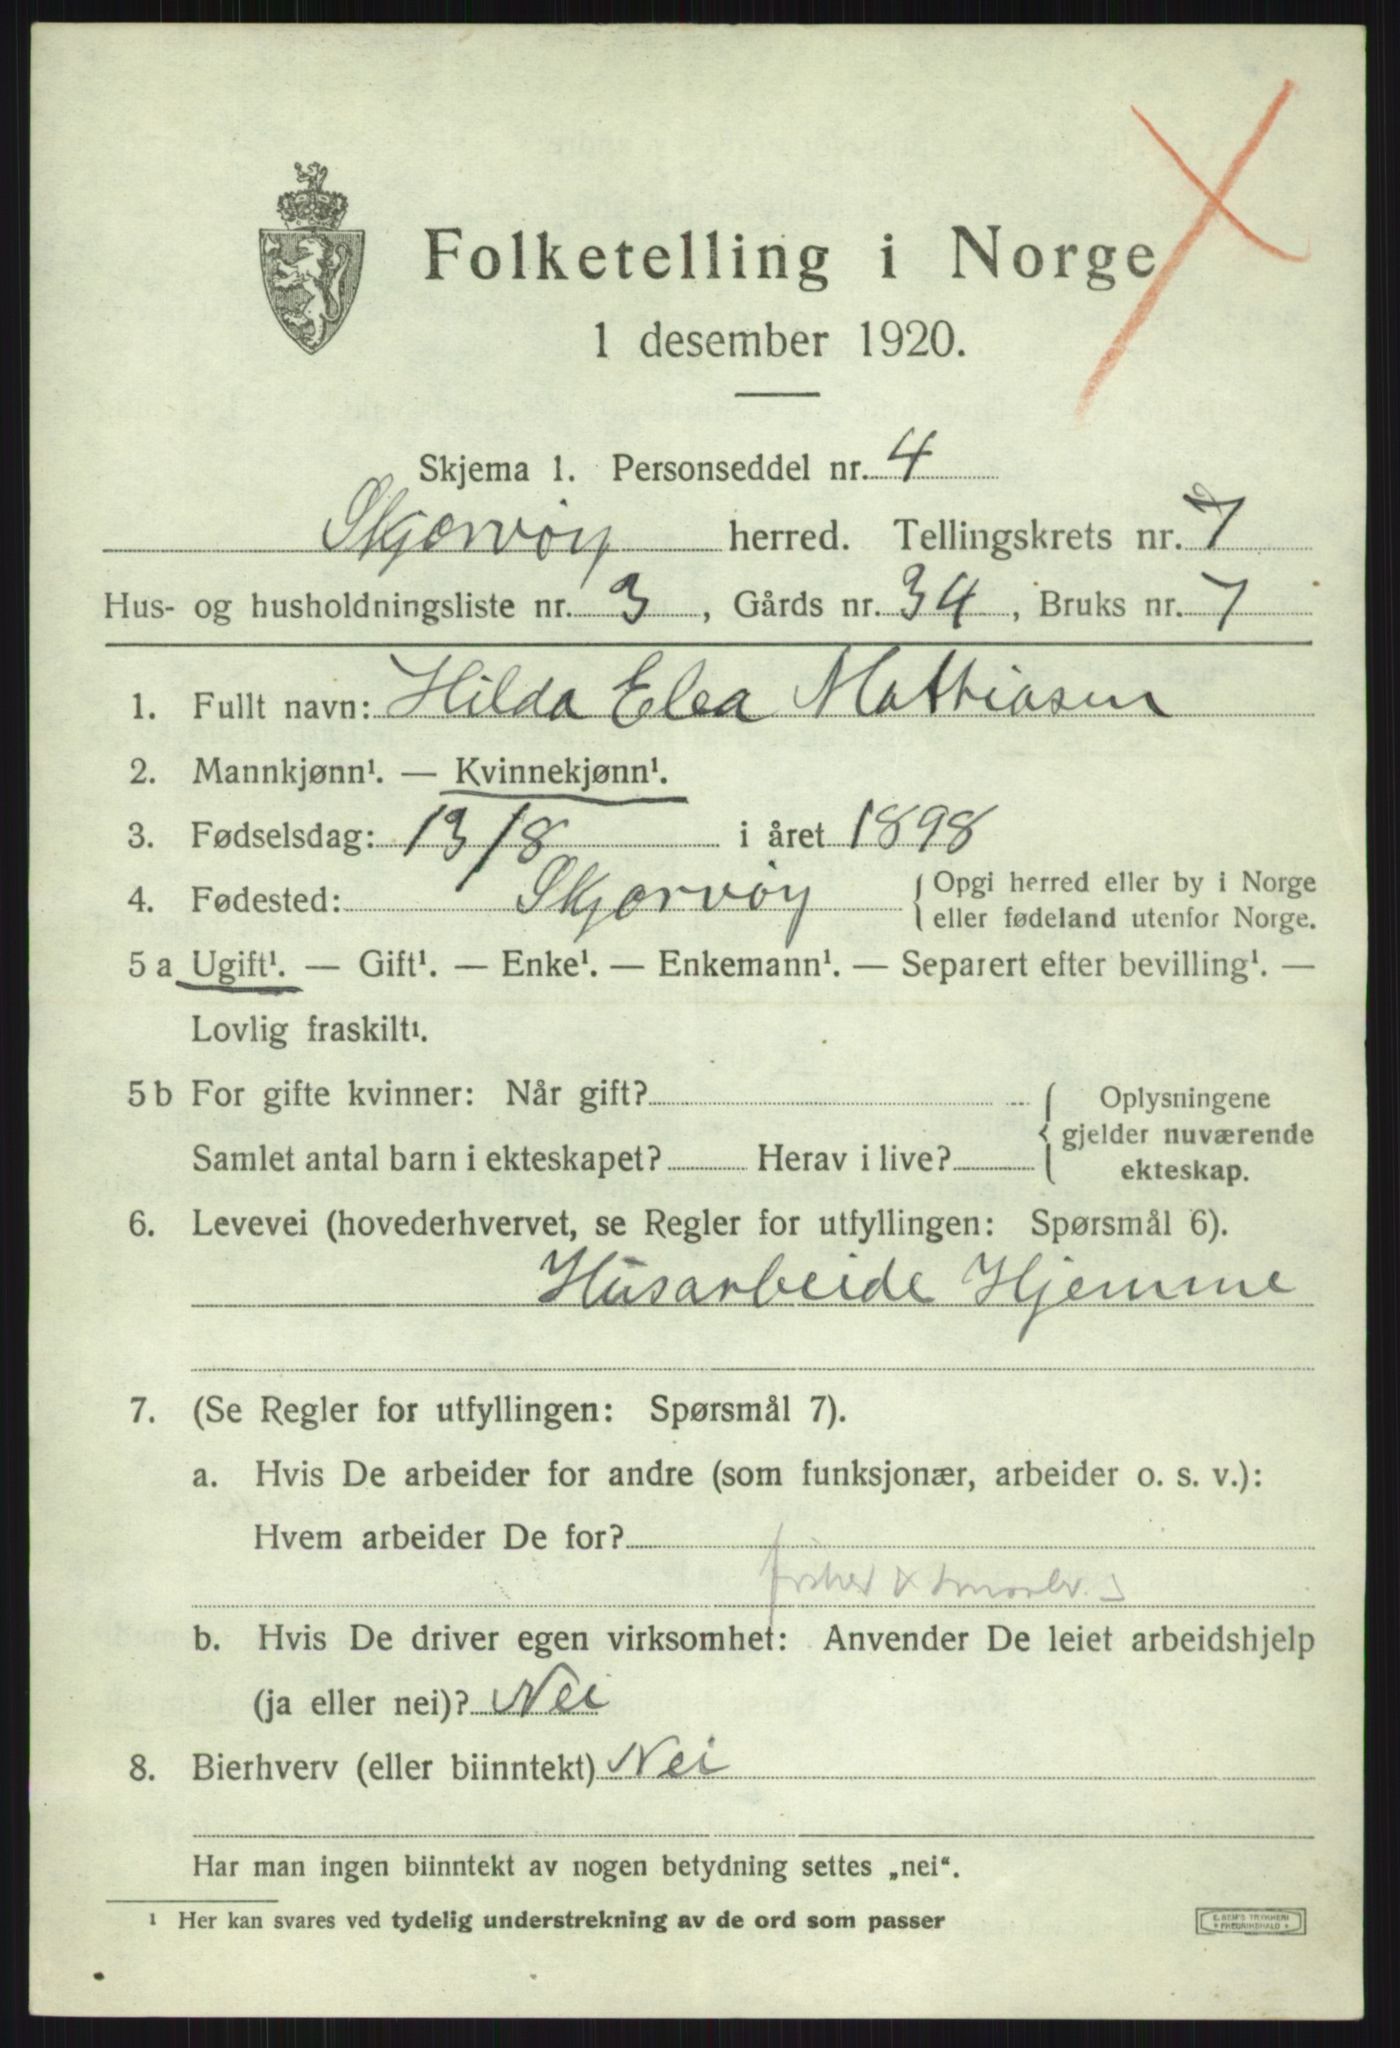 Folketelling i Norge
1 desember 1920.
Skjema 1. Personseddel nr. 4
Skjervøy herred. Tellingskrets nr. 7
Hus- og husholdningsliste nr. 3, Gårds nr. 34, Bruks nr. 7
1. Fullt navn: Hilda Elea Mathiasen
2. Mannkjønn¹. — Kvinnekjønn¹.
3. Fødselsdag: 13/8 i året 1898
4. Fødested: Skjervøy { Opgi herred eller by i Norge
eller fødeland utenfor Norge.
5 a Ugift¹. — Gift¹. — Enke¹. — Enkemann¹. — Separert efter bevilling¹. —
Lovlig fraskilt¹.
5 b For gifte kvinner: Når gift? { Oplysningene
gjelder nuværende
Samlet antal barn i ekteskapet? Herav i live?
ekteskap.
6. Levevei (hovederhvervet, se Regler for utfyllingen: Spørsmål 6).
Husarbeide Hjemme
7. (Se Regler for utfyllingen: Spørsmål 7).
a. Hvis De arbeider for andre (som funksjonær, arbeider o. s. v.):
Hvem arbeider De for?
b. Hvis De driver egen virksomhet: Anvender De leiet arbeidshjelp
(ja eller nei)? Nei
8. Bierhverv (eller biinntekt) Nei
Har man ingen biinntekt av nogen betydning settes „nei“.
¹ Her kan svares ved tydelig understrekning av de ord som passer
FREDRIKSHALD